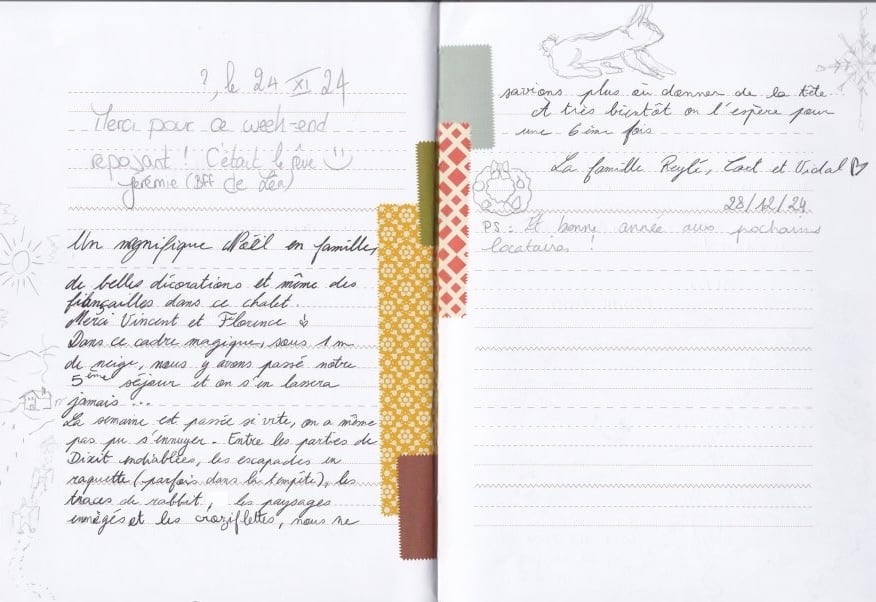 ?, le 24 XI 24
Merci pour ce week-end
reposant ! C'était le rêve :)
Jérémie (BFF de Léa)
Un magnifique Noël en famille,
de belles décorations et même des
fiançailles dans ce chalet.
Merci Vincent et Florence
Dans ce cadre magique, sous 1 m
de neige, nous y avons passé notre
5ème séjour et on s'en lassera
jamais ...
La semaine est passée si vite, on a même
pas pu s'ennuyer. Entre les parties de
Dixit endiablées, les escapades en
raquette (parfois dans la tempête), les
traces de rabbit, les paysages
enneigés et les croziflettes, nous ne
savions plus où donner de la tête.
A très bientôt on l'espère pour
une 6ème fois
La famille et Vidal
28/12/24
PS : Et bonne année aux prochains
locataires !